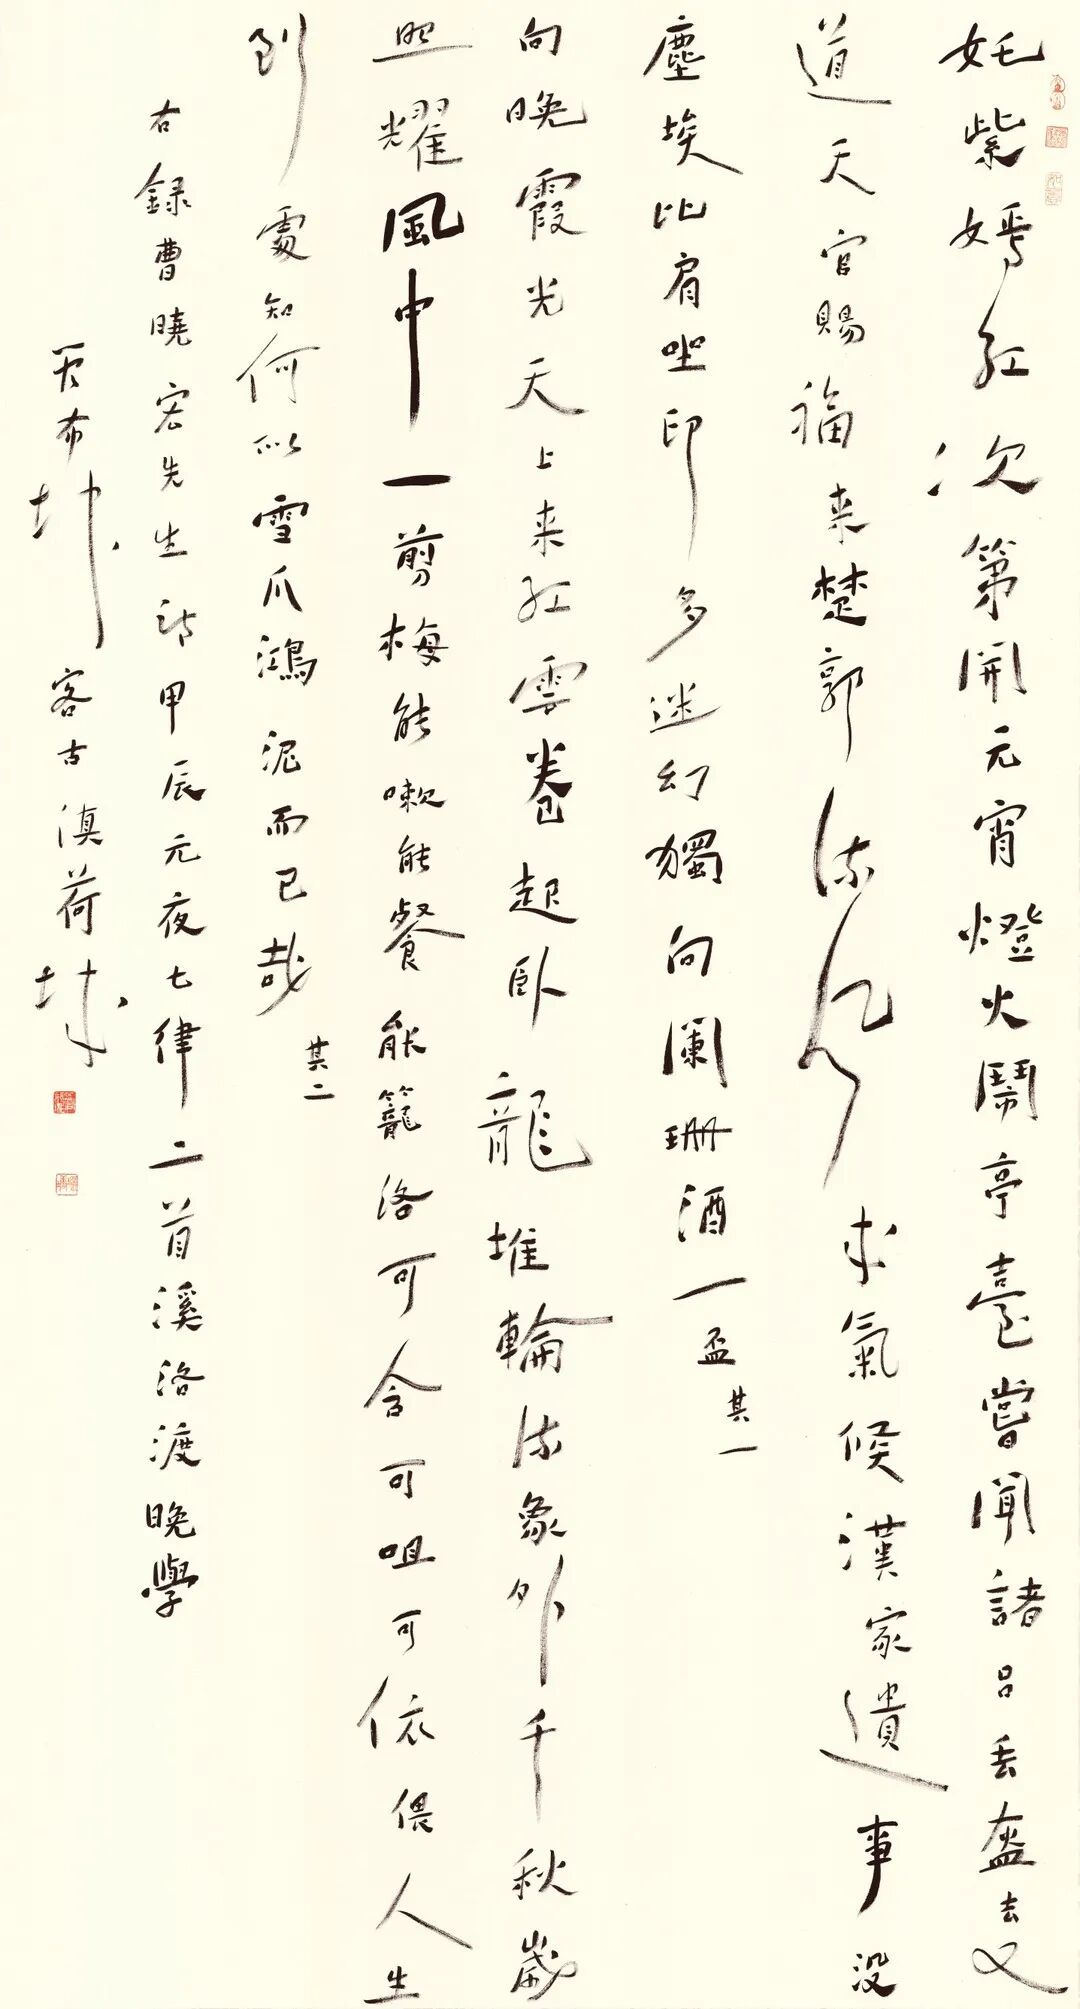 姹紫嫣红次第開元宵燈火鬧亭臺嘗聞諸吕丢盔去又
道天官賜福來楚郭流風求氣候漢家遺事没
塵埃比肩坐印多迷幻獨向闌珊酒一盃
其一
向晚霞光天上来红雲卷起卧龍堆輪流象外千秋歲
照耀風中一剪梅能嗽能餐能籠洛可含可咀可依偎人生
到處知何似雪爪鴻泥而已哉
其二
右録曹曉宏先生詩甲辰元夜七律二首溪洛渡晚學
天布坤客古滇荷城